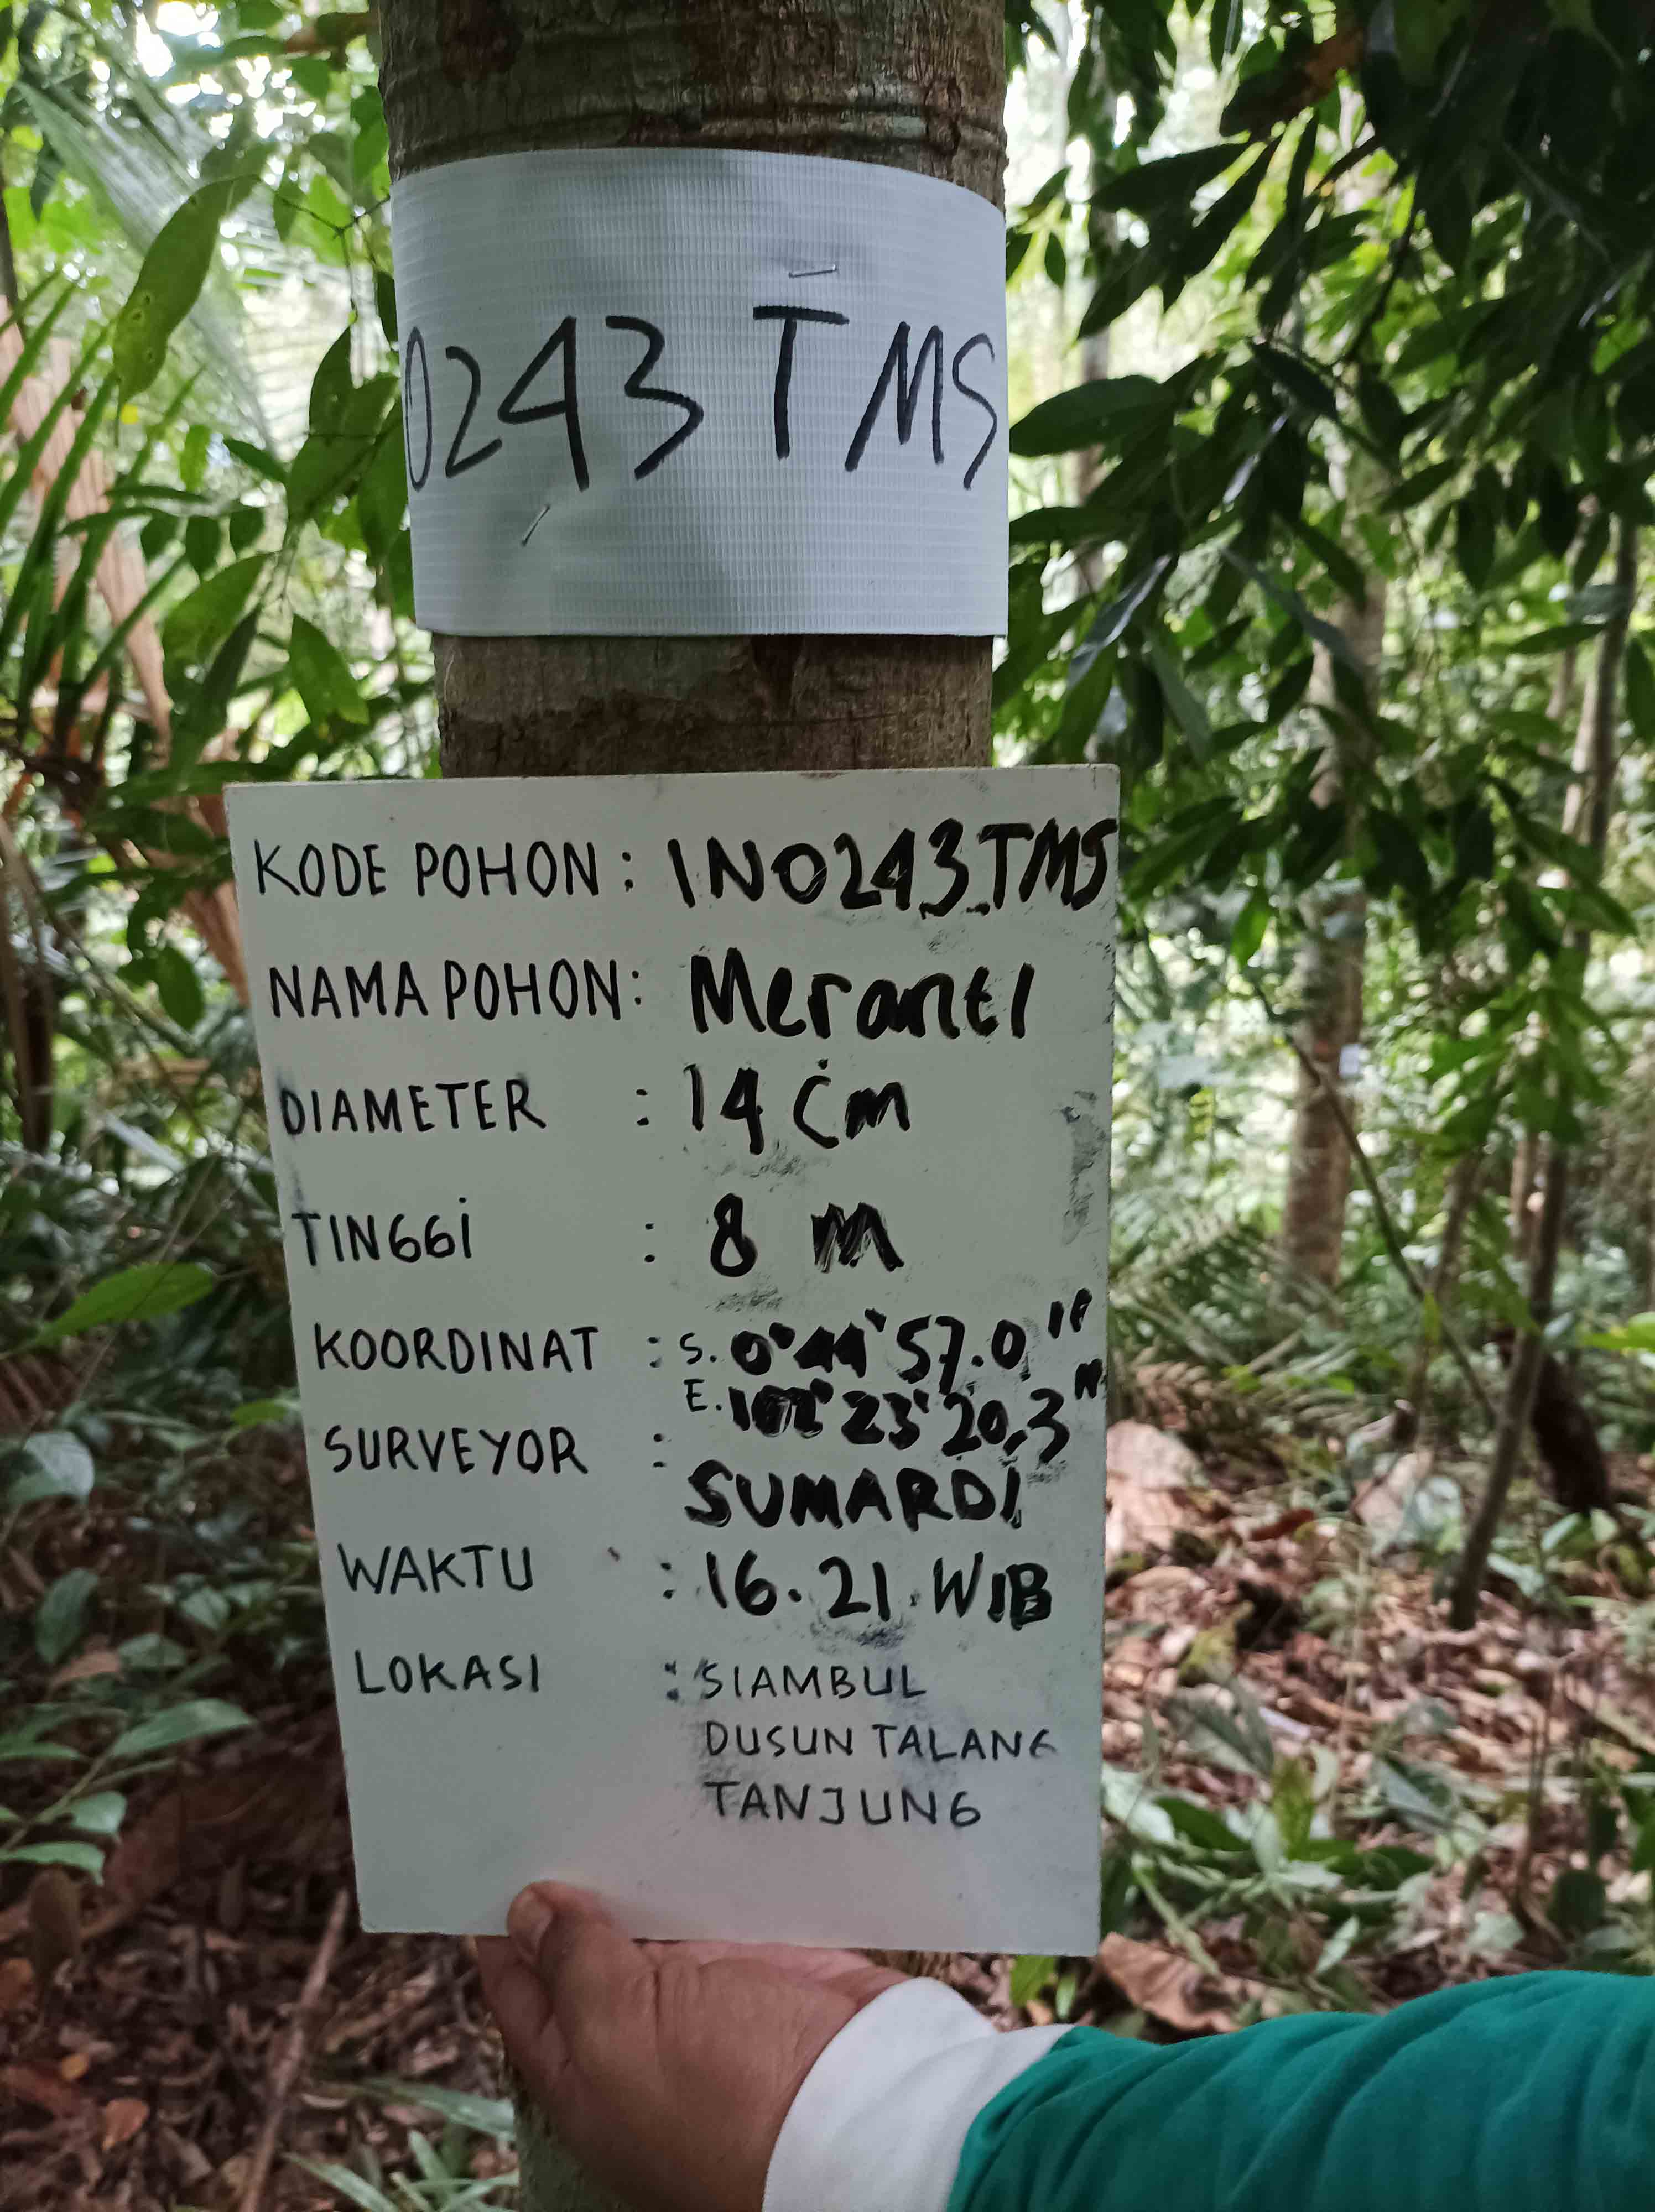 0243 TMS
KODE POHON : INO243_TMS
NAMA POHON : Meranti
DIAMETER : 14 cm
TINGGi : 8 M
KOORDINAT : S. 0°44'57.0"
E. 102°23'20,3"
SURVEYOR : SUMARDI
WAKTU : 16.21.WIB
LOKASI : SIAMBUL
DUSUN TALANG
TANJUNG